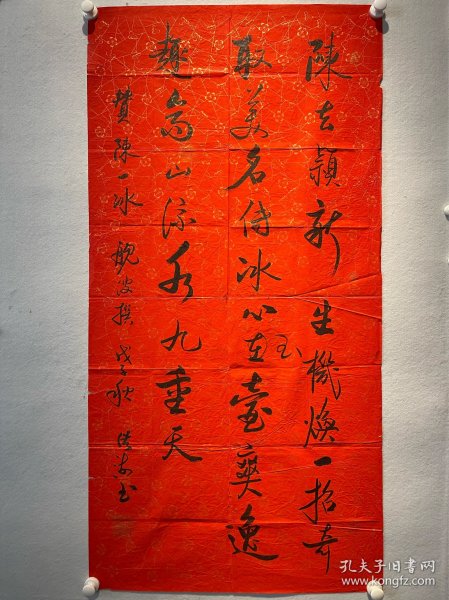 陳去穎新生機煥一招奇
取美名侍冰心在玉壺爽逸
趣高山流水九重天
贊陳一冰 魏安撰 戊子秋 洪書
孔夫子旧书网
https://www.kongfz.com